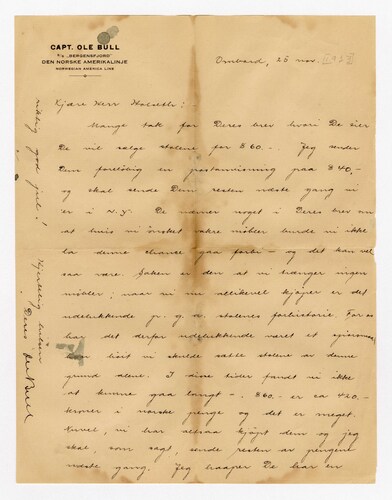 CAPT. OLE BULL
S/S "BERGENSFJORD"
DEN NORSKE AMERIKALINJE
NORWEGIAN AMERICA LINE
Ombord, 25 nov.
Kjære Herr
Mange tak for Deres brev hvori De sier
De vil salge stolene for $60.- Jeg sender
Dem foreløbig en postanvisning paa $40,-
og skal sende Dem resten næste gang vi
er i N.Y. De nævner noget i Deres brev om
at hvis vi ønsket vakre møbler burde vi ikke
la denne chance gaa forbi - og det kan vel
saa være. Saken er den at vi trænger ingen
møbler; naar vi nu allikevel kjøper er det
udelukkende p. g. a. stolenes forhistorie. For os
har det derfor udelukkende været et spørsmaal
om vi skulde sælge stolene av denne
grund alene. I disse tider fandt vi ikke
at kunne gaa langt -. $60.- er ca 420.-
kroner i norske penge og det er meget.
Nuvel, vi har altsaa kjøpt dem og jeg
skal, som sagt, sende resten av pengene
næste gang. Jeg haaper De har en
riktig god jul!
Hjertelig hilsen
Deres Ole Bull